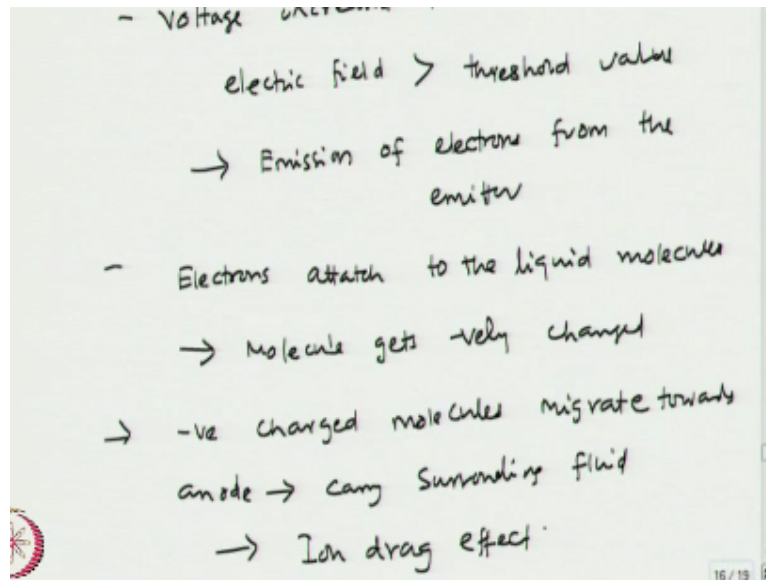 - Voltage
electric field > threshold value
→ Emission of electrons from the
emitter
- Electrons attatch to the liquid molecules
→ Molecule gets -vely charged
→ -ve charged molecules migrate towards
anode → carry surrounding fluid
→ Ion drag effect.
16 / 19